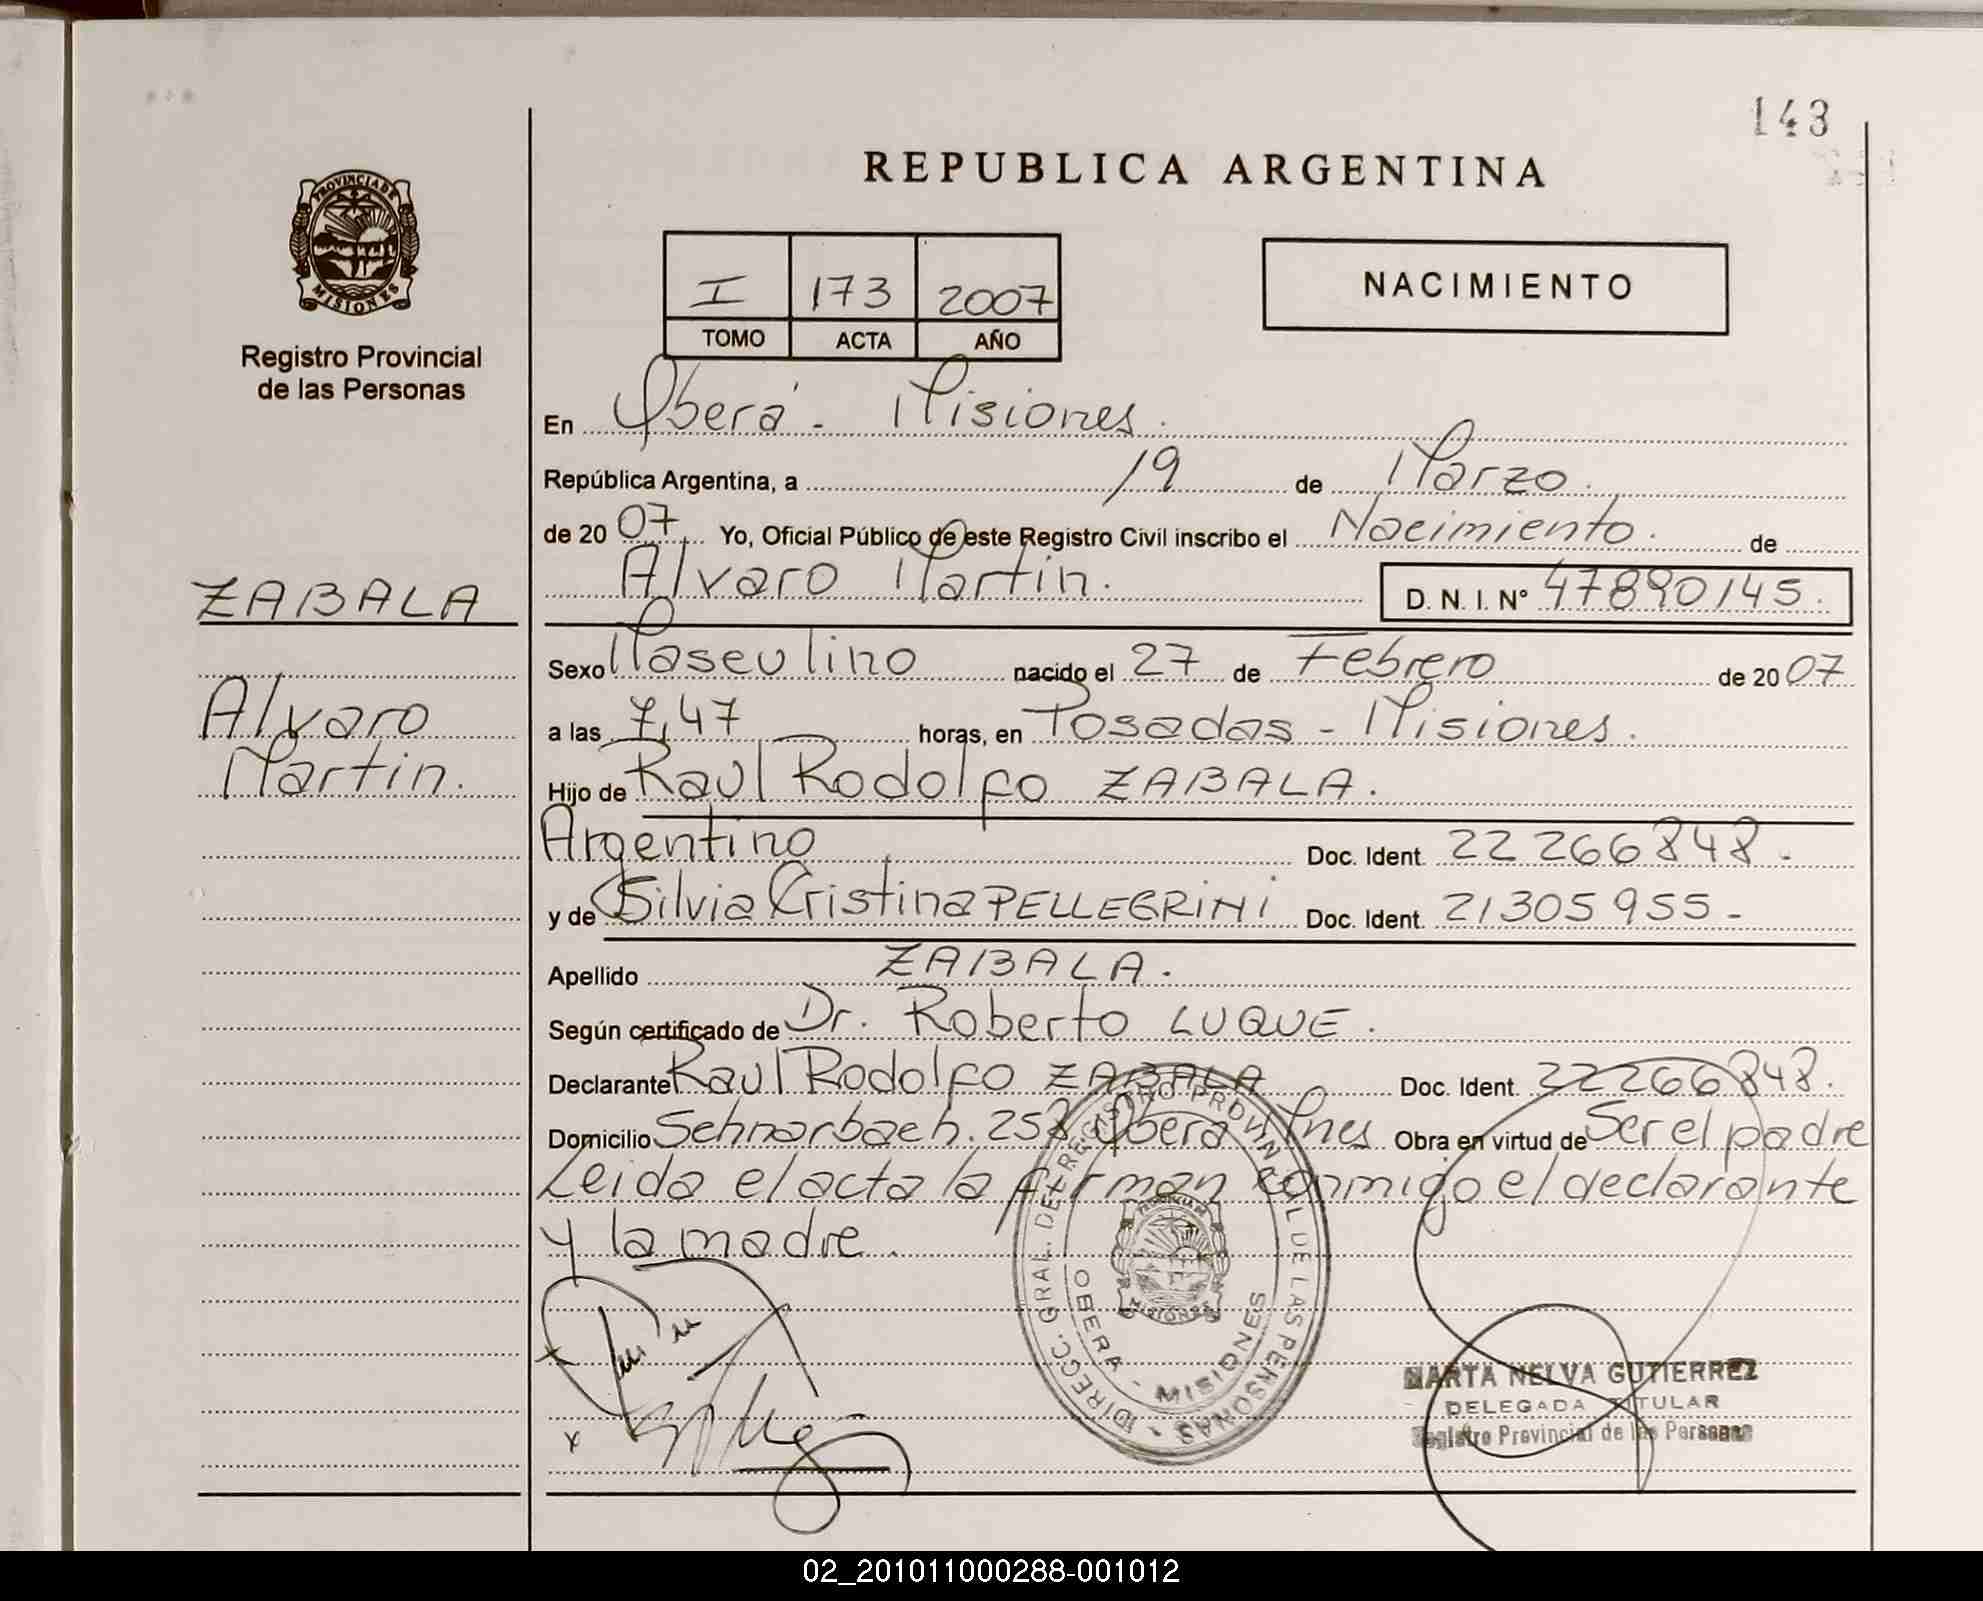 143
REPUBLICA ARGENTINA
PROVINCIA DE
MISIONES
Registro Provincial
de las Personas
I 173 2007
TOMO ACTA AÑO
NACIMIENTO
En Oberá - Misiones.
República Argentina, a 19 de Marzo.
de 20 07 Yo, Oficial Público de este Registro Civil inscribo el Nacimiento. de
Alvaro Martin. D. N. I. Nº 47890145.
ZABALA
Alvaro
Martin.
Sexo Masculino nacido el 27 de Febrero de 20 07
a las 7,47 horas, en Posadas - Misiones.
Hijo de Raul Rodolfo ZABALA.
Argentino Doc. Ident. 22266848.
y de Silvia Cristina PELLEGRINI Doc. Ident. 21305955-
Apellido ZABALA.
Según certificado de Dr. Roberto LUQUE.
Declarante Raul Rodolfo ZABALA Doc. Ident. 22266848.
Domicilio Schnarbach. 258 Oberá Mnes Obra en virtud de Ser el padre
Leida el acta la firman conmigo el declarante
y la madre.
DIRECC. GRAL. DE REGISTRO PROVINCIAL DE LAS PERSONAS
OBERA - MISIONES
MISIONES
MARTA NELVA GUTIERREZ
DELEGADA TITULAR
Registro Provincial de las Personas
02_201011000288-001012